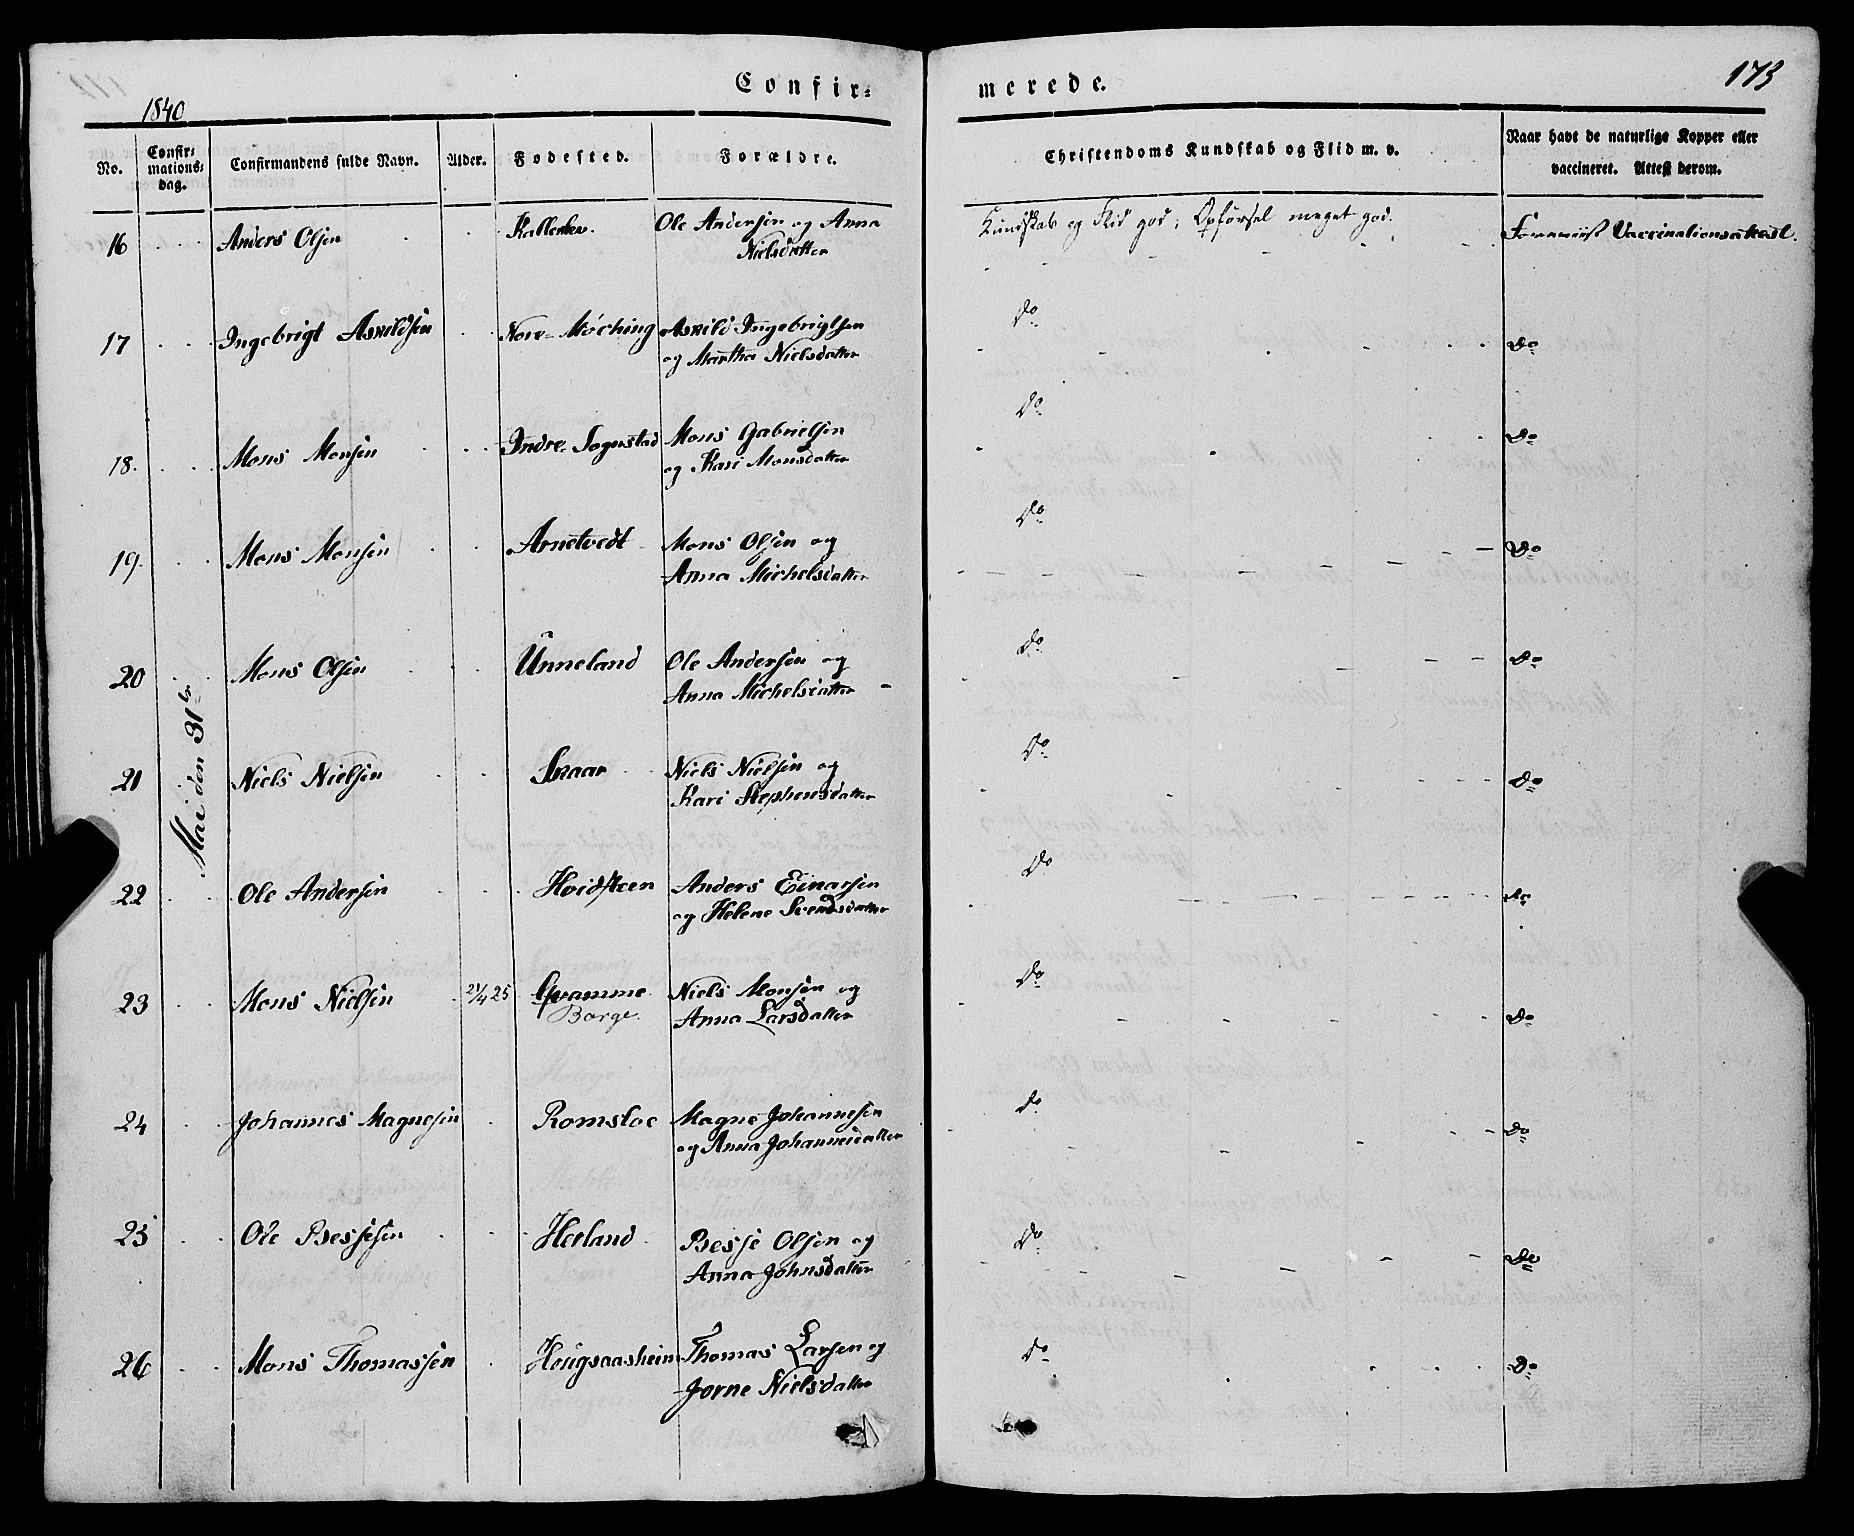 Confir-
merede.
173
1840
No.
Confir-
mations-
dag.
Confirmandens fulde Navn.
Alder.
Fødested.
Forældre.
Christendoms Kundskab og Flid m. v.
Naar havt de naturlige Kopper eller
vaccineret. Attest derom.
Mai den 31te
16 Anders Olsen Ole Andersen og Anna Kundskab og Flid god; Opførsel meget god. Vaccinationsattest.
Nielsdatter
17 Ingebrigt Askildsen Askild Ingebrigtsen Do Do
og Martha Nielsdatter
18. Mons Monsen Indre Mons Gabrielsen Do Do
og Kari Monsdatter
19. Mons Monsen Arnetvedt Mons Olsen og Do Do
Anna Michelsdatter
20 Mons Olsen Unneland Ole Andersen og Do Do
Anna Michelsdatter
21 Niels Nielsen Niels Nielsen og Do Do
Kari Stephensdatter
22 Ole Andersen Hvidsteen Anders Einarsen Do Do
og Helene Svendsdatter
23 Mons Nielsen 21/4 25 Qvamme Niels Monsen og Do Do
Borge. Anna Larsdatter
24 Johannes Magnesen Romsloe Magne Johannesen Do Do
og Anna Johannesdatter
25 Ole Bessesen Herland Besse Olsen og Do Do
Anna Johnsdatter
26 Mons Thomassen Thomas Larsen og Do Do
Jorne Nielsdatter